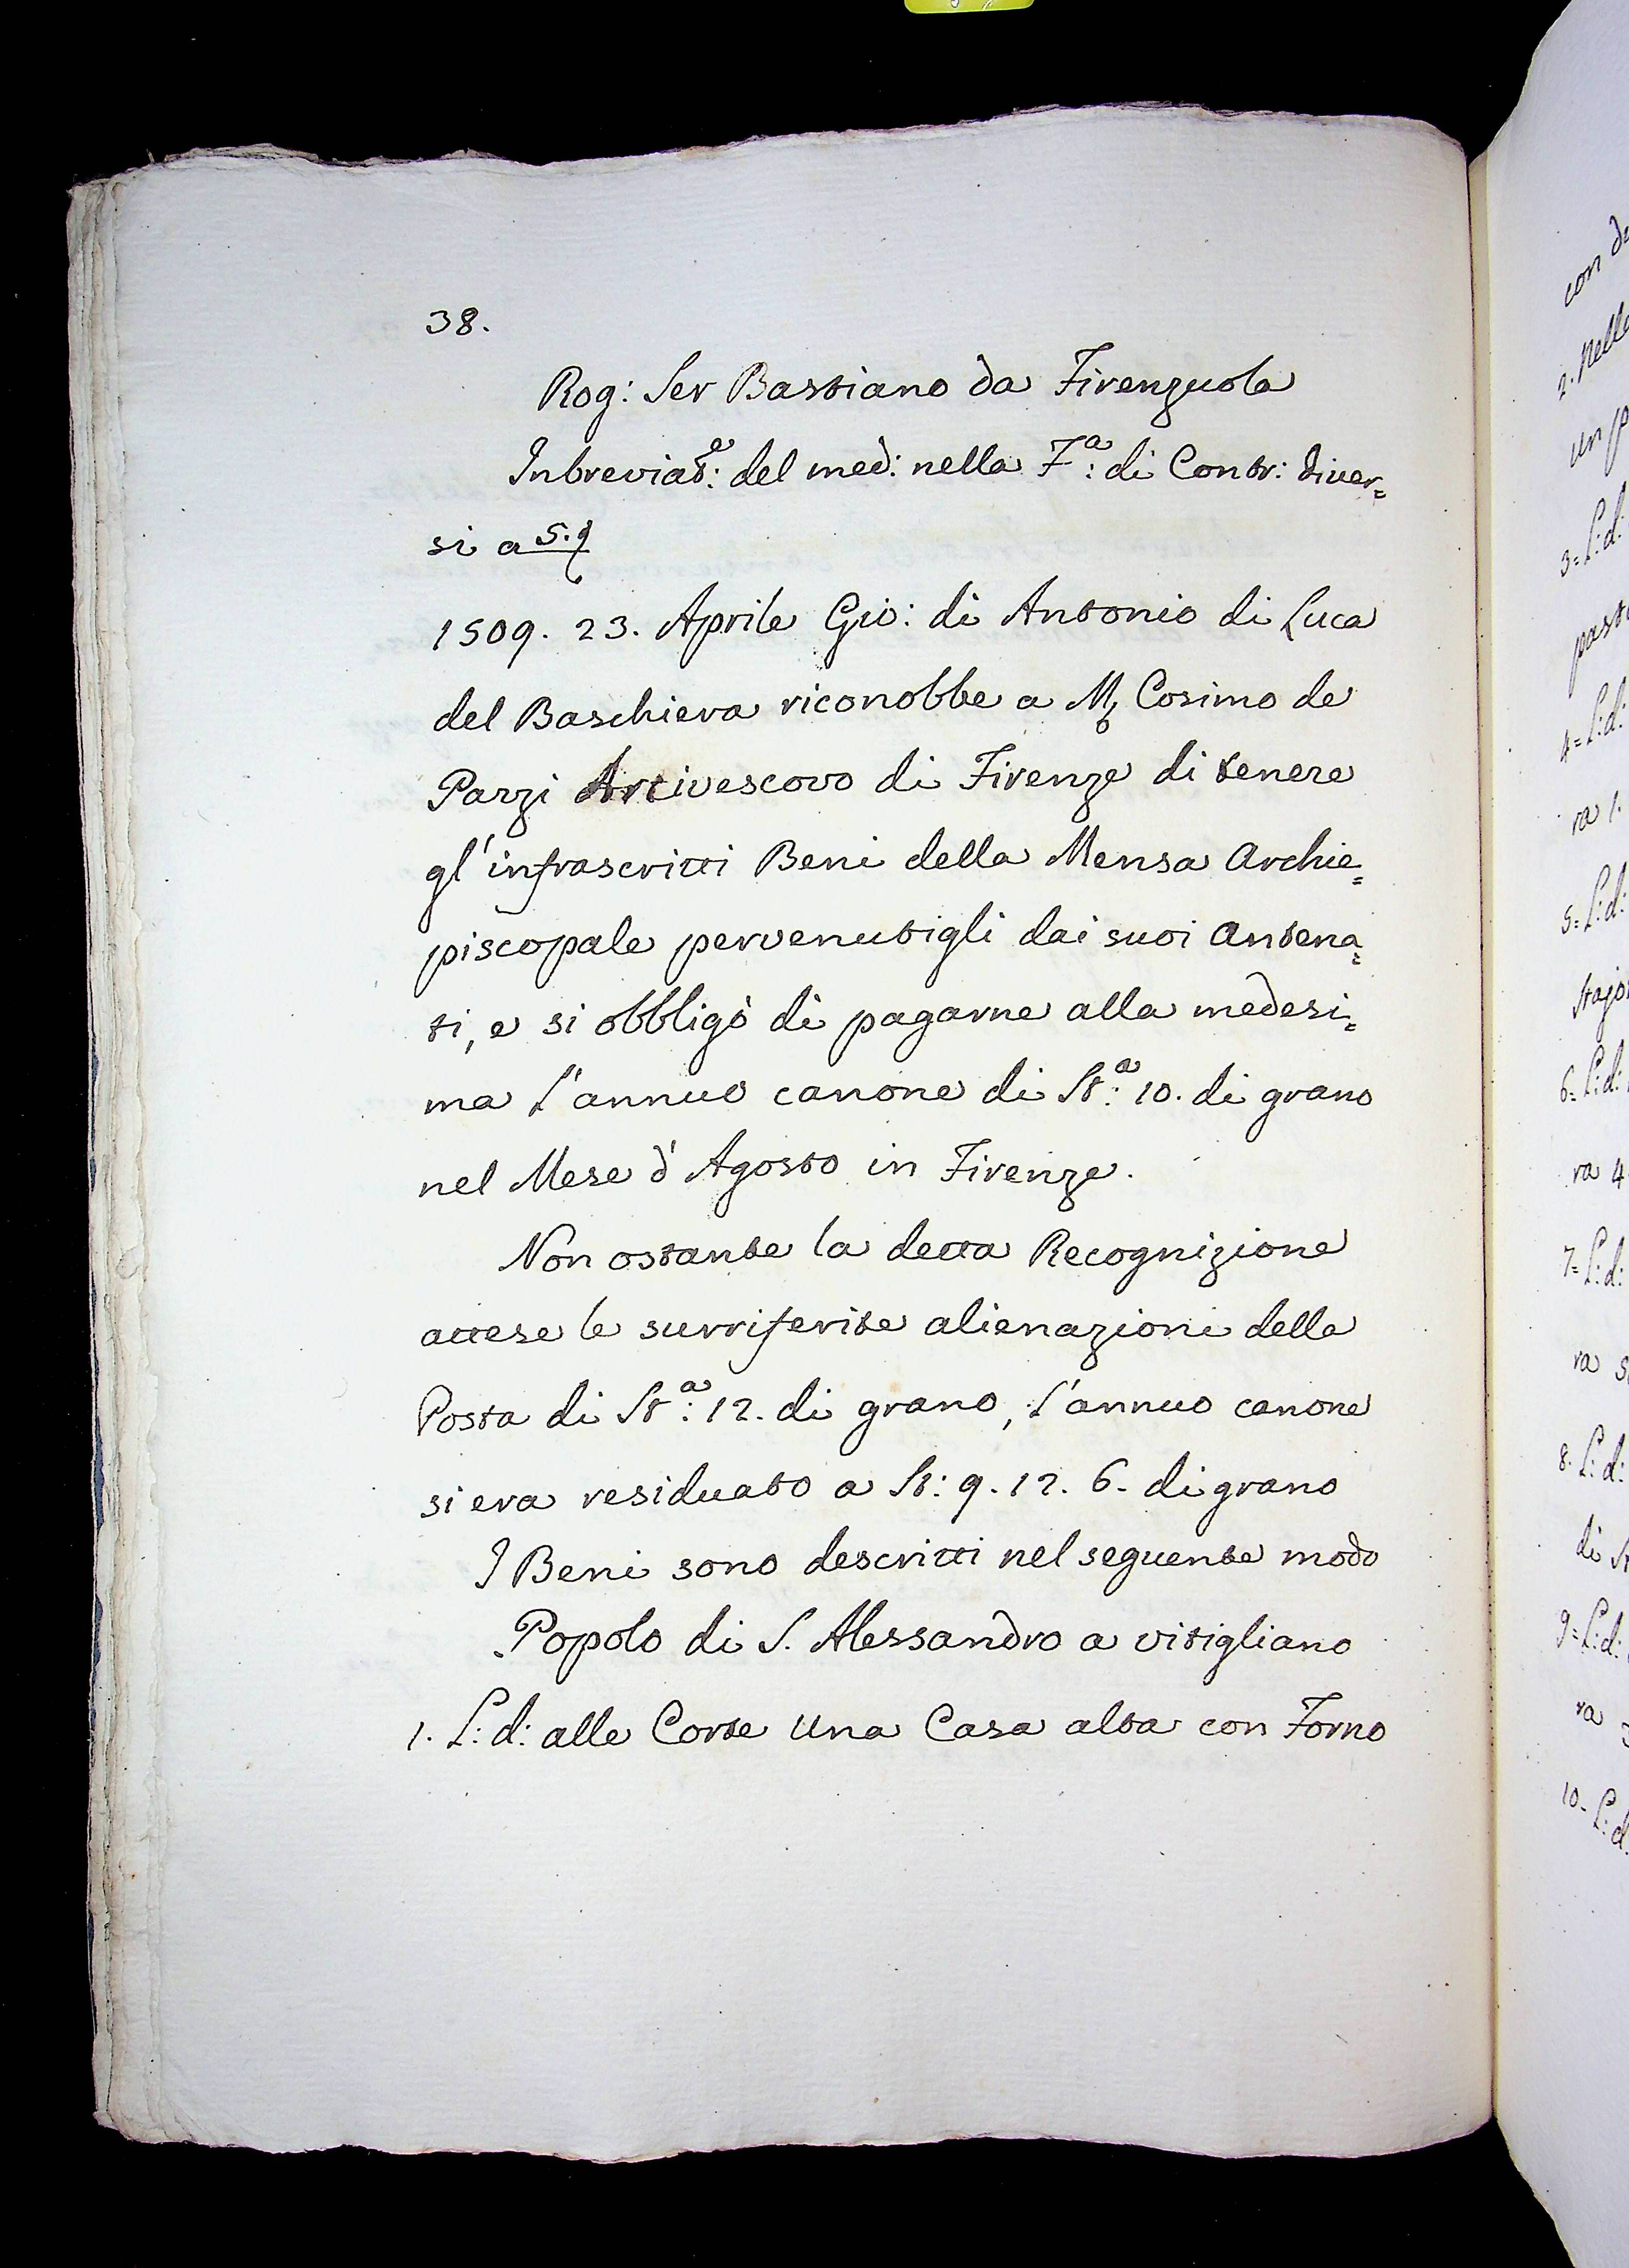 38.
Rog: Ser Bastiano da Firenzuola
Inbreviat:e del med: nella F:a di Contr: diver=
si a 59
1509. 23. Aprile Gio: di Antonio di Luca
del Baschiera riconobbe a M. Cosimo de
Pazzi Arcivescovo di Firenze di tenere
gl'infrascritti Beni della Mensa Archie=
piscopale pervenutigli dai suoi Antena=
ti, e si obbligò di pagarne alla medesi=
ma l'annuo canone di St:a 10. di grano
nel Mese d'Agosto in Firenze.
Non ostante la detta Recognizione
attese le surriferite alienazioni della
Posta di St:a 12. di grano, l'annuo canone
si era residuato a St: 9. 12. 6. di grano
I Beni sono descritti nel seguente modo
Popolo di S. Alessandro a vitigliano
1. L: d: alle Corte Una Casa alta con Forno
con
2. Nella
un
3= L: d:
4= L: d:
ra 1.
5= L: d:
6= L: d:
ra 4
7= L: d:
ra
8. L: d:
di
9= L: d:
ra
10= L: d.